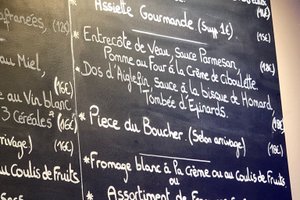 Assiette Gourmande (Supp. 1€).
antanées, (12€)
* Entrecôte de Veau, sauce Parmesan,
Pomme au Four à la Crème de ciboulette.
au Miel, (16€)
* Dos d'Aiglefin, sauce à la bisque de Homard
Tombée d'Epinards.
au Vin blanc
3 Céréales" (16€)
* Piece du Boucher. (Selon arrivage)
rivage) (15€)
ou Coulis de Fruits
* Fromage blanc à la Crème ou au Coulis de Fruits
ou
Assortiment de